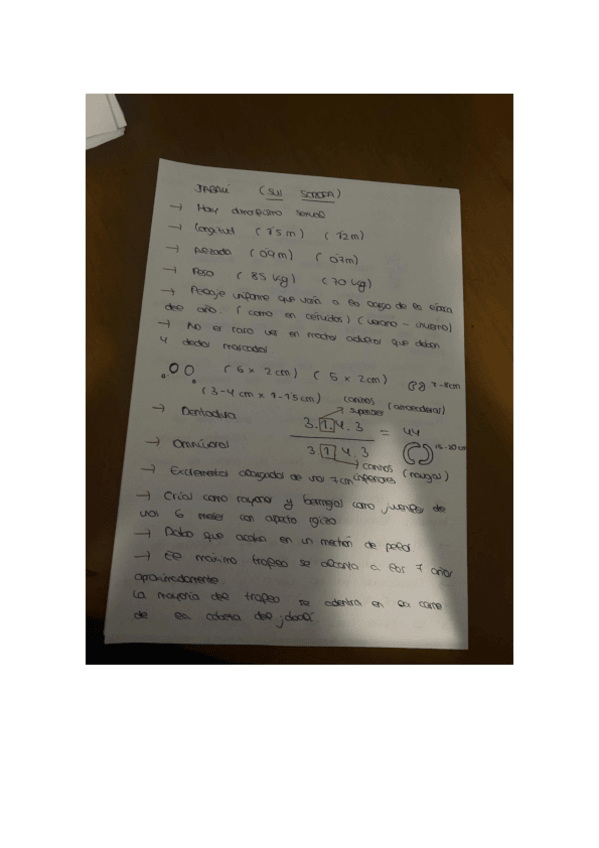 JABALÍ (SUS SCROFA)
→ Hay dimorfismo sexual
→ Longitud (1'5 m) (1'2 m)
→ Alzada (0'9 m) (0'7 m)
→ Peso (85 kg) (70 kg)
→ Pelaje uniforme que varía a lo largo de la época
del año. (como en cérvidos) (verano - invierno)
→ No es raro ver en machos adultos que dejen
4 dedos marcados.
(6 x 2 cm) (5 x 2 cm) 7-8 cm
(3-4 cm x 1-1'5 cm) caninos (amoladeras)
superiores
→ Dentadura 3.1.4.3 = 44
→ Omnívoros 3 1 4.3 15-20 cm
caninos (navajas)
→ Excrementos alargados de unos 7 cm inferiores
→ Crías como rayones y bermejos como juveniles de
unos 6 meses con aspecto rojizo
→ Rabo que acaba en un mechón de pelos.
→ El máximo trofeo se alcanza a los 7 años
aproximadamente
La mayoría del trofeo se adentra en la carne
de la cabeza del jabalí.